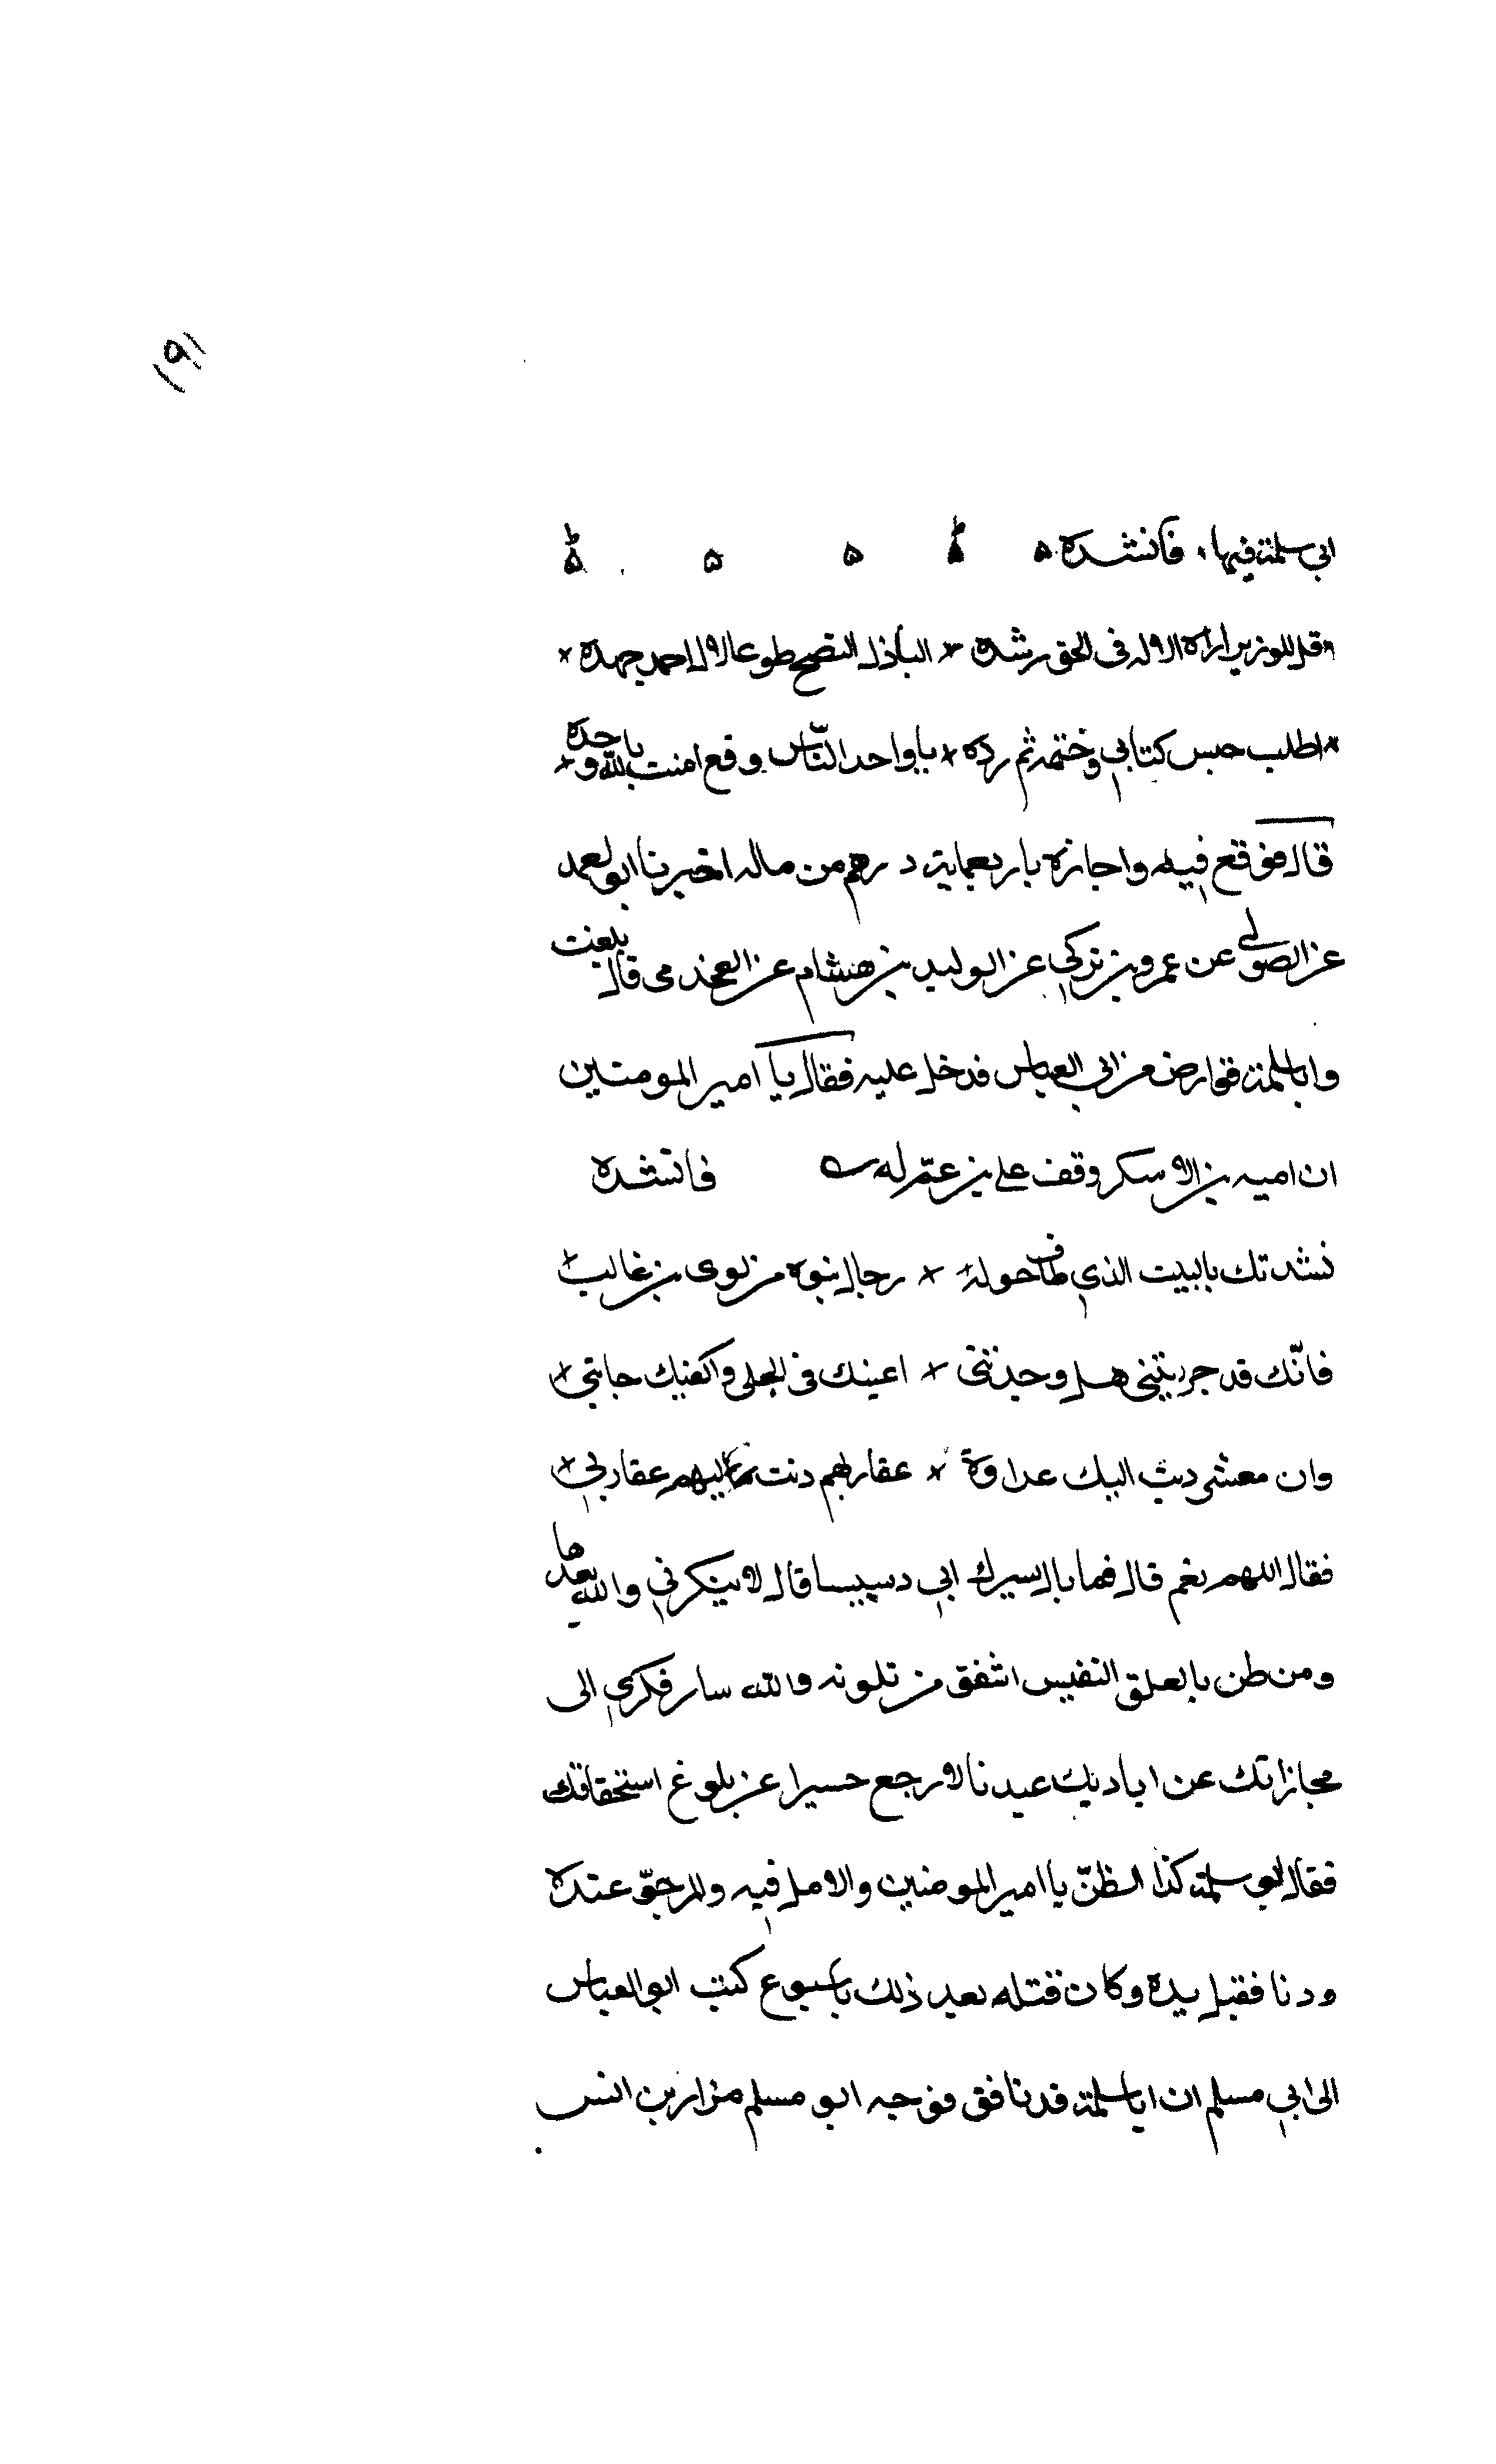 ابي سلمة فيها، فانشده
قل للوزير اراه الاله في الحق رشده * الباذل النصح طوعا لال احمد جهده *
* اطلب حبس كتابي وختمه ثم رده * يا واحد الناس وقع امنت بالله وحده *
قال فوقع فيه واجازه باربعماية درهم من ماله اخبرنا ابو احمد
عن الصولي عن عمرو بن تركي عن الوليد بن هشام عن القحذمي قال بلغت
وابا سلمة قوارض عن ابي العباس فدخل عليه فقال يا امير المومنين
ان امية بن الاسكر وقف على بن عم له فانشده
نشدتك بالبيت الذي طاف حوله * رجال بنوه من لوى بن غالب
فانك قد جربتني هل وجدتني * اعينك في الجلى واكفيك جانبي *
وان معشر دبت اليك عداوة * عقاربهم دبت اليهم عقاربي *
فقال اللهم نعم قال فما بال سيرك ابي دسيسا قال لا ينكرني والله بعدها
ومن ظن بالعلق النفيس اشفق من تلونه والله سار فكري الى
مجازاتك عن اياديك عندنا لا رجع حسيرا عن بلوغ استحقاقك
فقال ابو سلمة كذا الظنّ يا امير المومنين والامل فيه والمرجوّ عنده
ودنا فقبل يده وكان قتله بعد ذلك باسبوع كتب ابو العباس
الى ابي مسلم ان ابا سلمة قد نافق فوجه ابو مسلم مرار بن انس